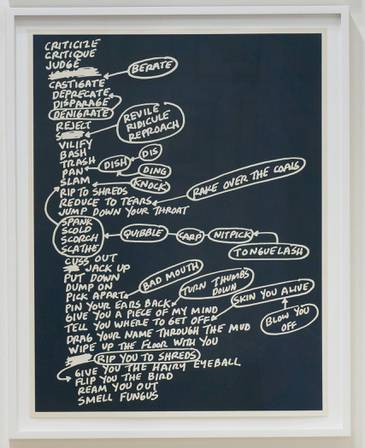 CRITICIZE
CRITIQUE
JUDGE
BERATE
CASTIGATE
DEPRECATE
DISPARAGE
DENIGRATE
REJECT
REVILE
RIDICULE
REPROACH
VILIFY
BASH
TRASH
DISH
DIS
PAN
DING
SLAM
KNOCK
RIP TO SHREDS
RAKE OVER THE COALS
REDUCE TO TEARS
JUMP DOWN YOUR THROAT
SPANK
SCOLD
SCORCH
SCATHE
QUIBBLE
CARP
NITPICK
TONGUELASH
CUSS OUT
JACK UP
PUT DOWN
BAD MOUTH
DUMP ON
PICK APART
TURN THUMBS
DOWN
PIN YOUR EARS BACK
SKIN YOU ALIVE
GIVE YOU A PIECE OF MY MIND
TELL YOU WHERE TO GET OFF
BLOW YOU
OFF
DRAG YOUR NAME THROUGH THE MUD
WIPE UP THE FLOOR WITH YOU
RIP YOU TO SHREDS
GIVE YOU THE HAIRY EYEBALL
FLIP YOU THE BIRD
REAM YOU OUT
SMELL FUNGUS